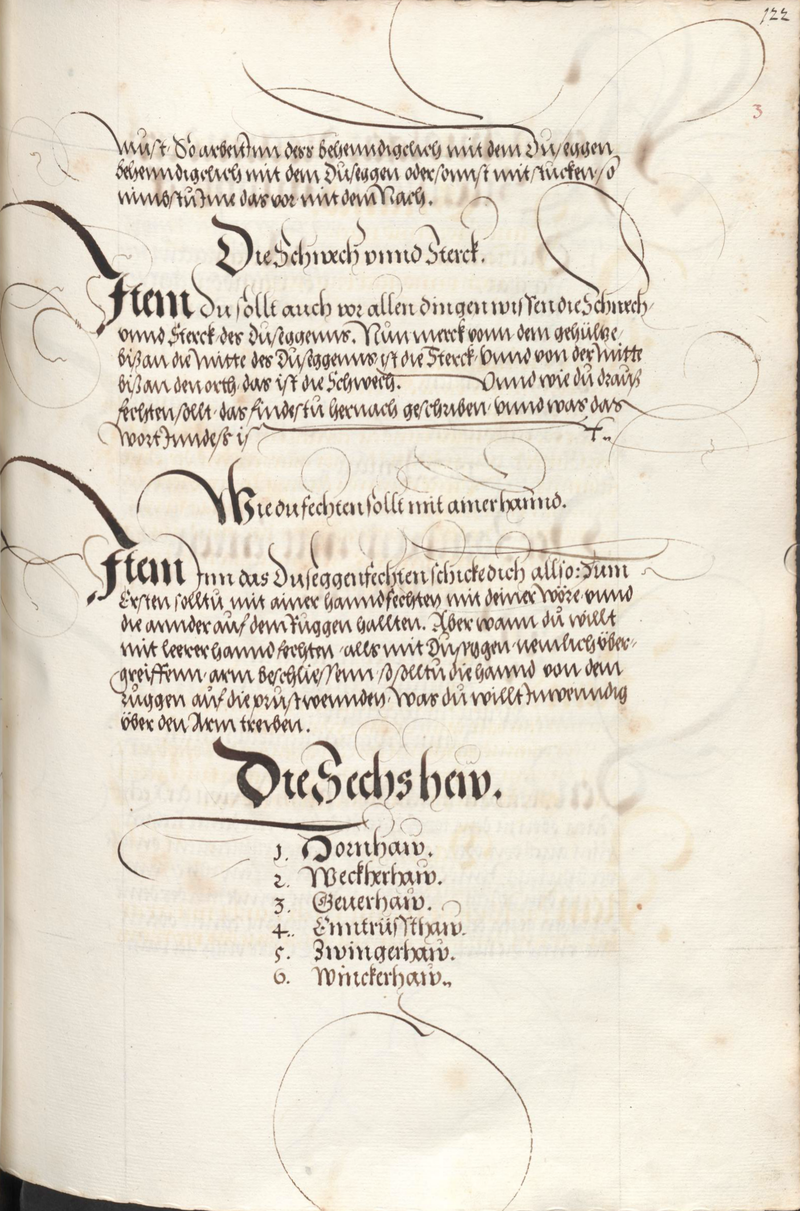 122
3
must. So arbeit Inn dess behenndigclich mit dem Duseggen
behenndigclich mit dem Duseggen oder sonnst mit stucken, so
nimbstu Ime das vor mit dem Nach.
Die Schwech unnd Sterck.
Item Du sollt auch vor allen dingen wissen die Schwech
unnd Sterck des Duseggenns. Nun merck vonn dem gehültze
biß an die mitte des Duseggenns ist die Sterck unnd von der mitte
biß an den orth, das ist die Schwech. Unnd wie du drauß
fechten sollt, das findestu hernach geschriben, unnd was das
wort Inndess is t.
Wie du fechten sollt mit ainer hannd.
Item Inn das Duseggenfechten schicke dich allso: Zum
Ersten solltu mit ainer hannd fechten mit deiner Wöre unnd
die annder auf dem Ruggen hallten. Aber wann du willt
mit leerer hannd fechten, alls mit Duseggen, nemlich über-
greiffenn, arm beschliessenn, so solltu die hannd von dem
ruggen auf die prust wennden, Was du willt Inwenndig
über den Arm treiben.
Die Sechs hew.
1. Dornhaw.
2. Weckherhaw.
3. Geuerhaw.
4. Enntrüssthaw.
5. Zwingerhaw.
6. Winckerhaw.